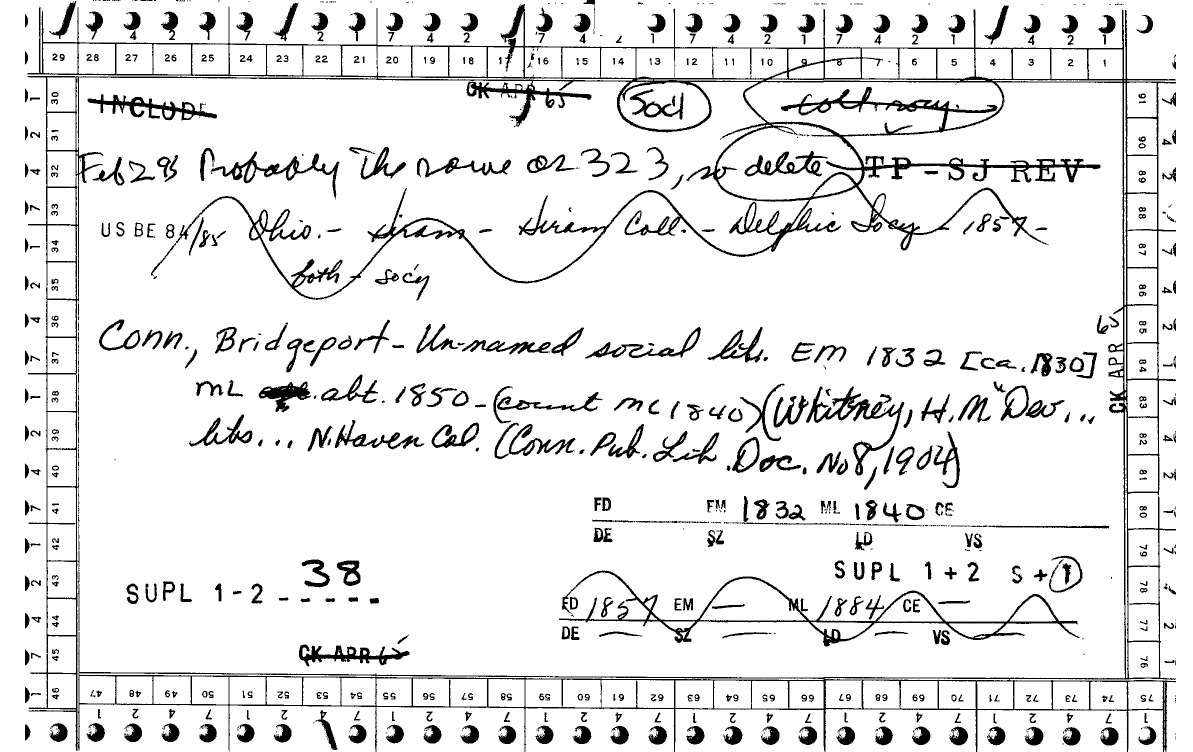 29 28 27 26 25 24 23 22 21 20 19 18 17 16 15 14 13 12 11 10 9 8 7 6 5 4 3 2 1
INCLUDE CK APR 65 Soc1 coll. socy.
Feb 28 Probably the same as 323, so delete TP-SJ REV
US BE 84/85 Ohio.- Hiram - Hiram Coll. - Delphic Socy - 1857 -
both - soc'y
Conn., Bridgeport - Un-named social lib. EM 1832 [ca. 1830]
ML abt. 1850 - (count ML 1840) (Whitney, H. M "Dev...
libs... N. Haven Col. (Conn. Pub. Lib. Doc. No 8, 1904)
FD EM 1832 ML 1840 CE
DE SZ LD VS
SUPL 1-2 38 SUPL 1+2 S+1
FD 1857 EM — ML 1884 CE —
DE — SZ — LD — VS —
CK APR 65
CK APR 65
30 31 32 33 34 35 36 37 38 39 40 41 42 43 44 45 46
47 48 49 50 51 52 53 54 55 56 57 58 59 60 61 62 63 64 65 66 67 68 69 70 71 72 73 74 75
91 90 89 88 87 86 85 84 83 82 81 80 79 78 77 76